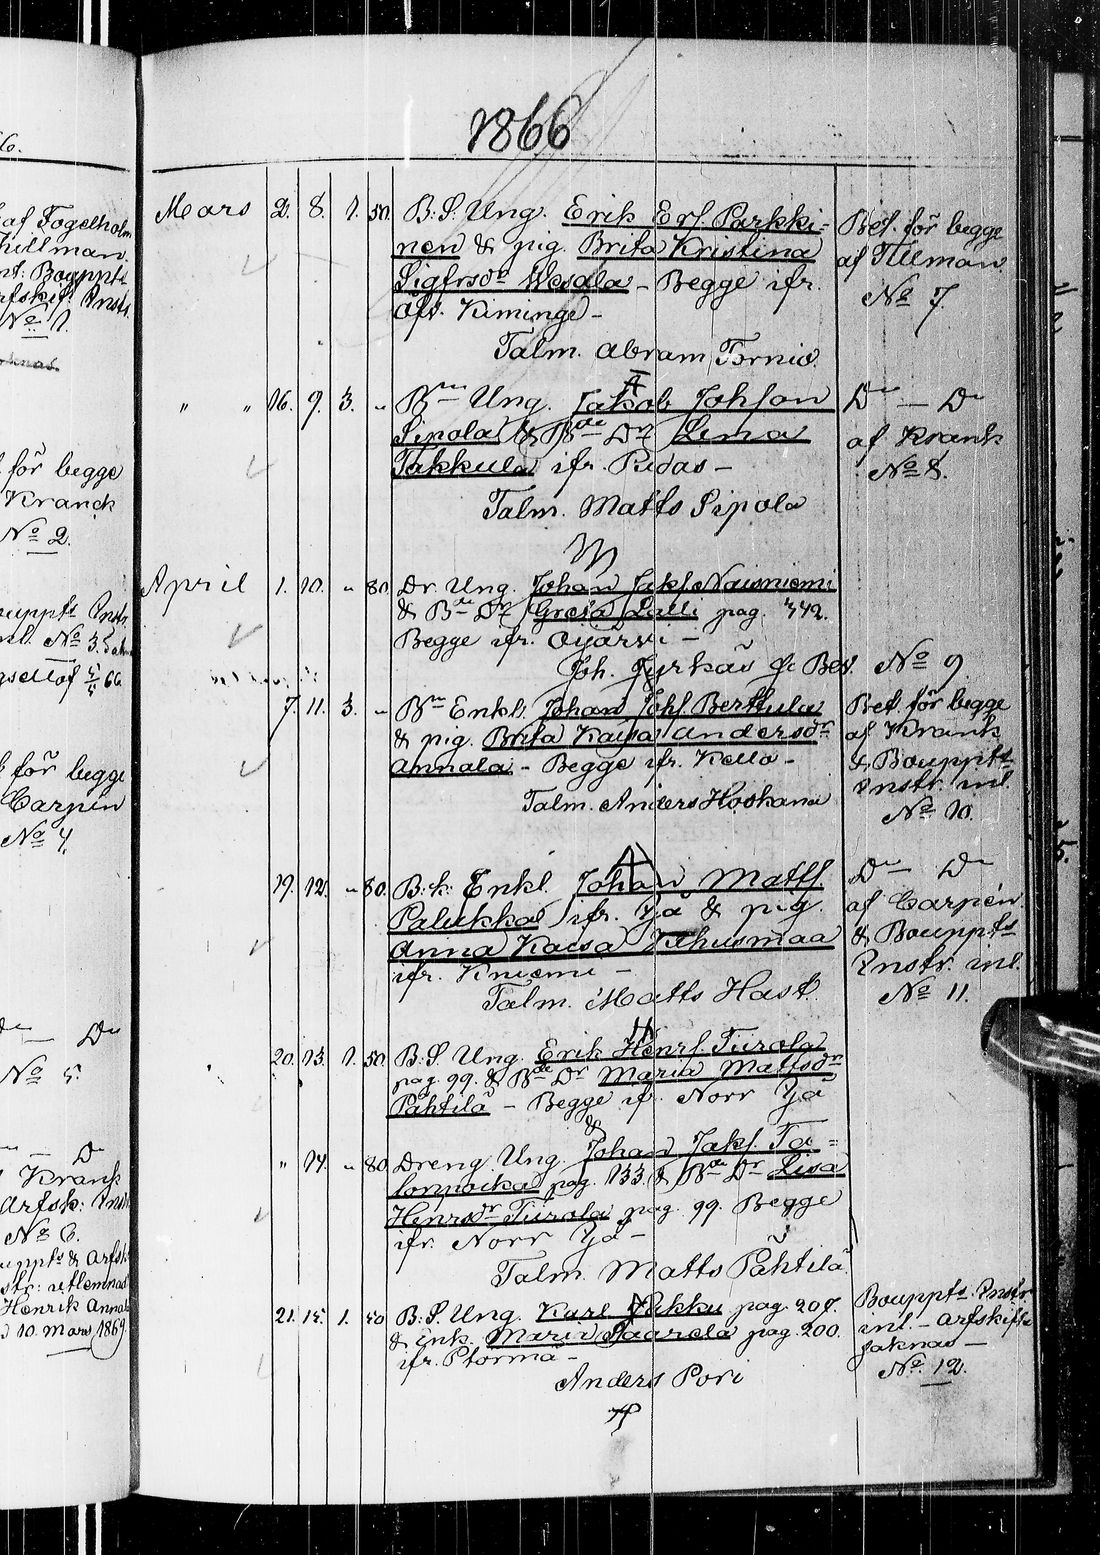 1866
Mars 2. 8. 1. 50. B.S. Ung. Erik Erss. Parkki-
nen & pig. Brita Kristina
Sigfrsdr Wesala - Begge ifr.
Öfv. Kiminge -
Talm. Abram Tornio.
Bet. för begge
af Tillman
No 7.
" " 16. 9. 3. " Bn Ung. Jakob Johsson
Sipola & Bde Dr Lena
Takkula ifr. Pudas -
Talm. Matts Sipola
Do - Do
af Krank
No 8.
April 1. 10. " 80. Dr. Ung. Johan Jaks. Naisniemi
& Bde Dr Greta Lalli pag. 442.
Begge ifr. Oijärvi -
Joh. Jyrkäs
No 9.
7. 11. 3. " Bn Enkl. Johan Johs. Berttula
& pig. Brita Kaisa Andersdr
Annala - Begge ifr. Kello -
Talm. Anders Hookana
Bet. för begge
af Krank
& Bouppts
Instr. inl.
No 10.
19. 12. " 80. B.k. Enkl. Johan Matts.
Palukka ifr. Ijå & pig.
Anna Kaisa
ifr. Kniemi -
Talm. Matts Hast.
Do - Do
af Carpén
& Bouppts
Instr. inl.
No 11.
20. 13. 1. 50. B.S. Ung. Erik Henrs. Turola
pag. 99. & Bde Dr Maria Mattsdr
Pähtilä - Begge ifr. Norr Ijå
&
" 14. " 80. Dreng Ung. Johan Jaks. Ta-
lonpoika pag. 133. & Bde Dr Lisa
Henrsdr Turola pag. 99. Begge
ifr. Norr Ijå -
Talm. Matts Pähtilä
21. 15. 1. 50 B.S. Ung. Karl Jakku pag. 207.
& enk. Maria Saarela pag. 200.
ifr.
Anders Pori
Bouppts Instr.
inl. - arfskifte
saknas -
No. 12.
af Fogelholm
Tillman.
No 1.
för begge
Kranck
No 2.
No 3.
för begge
Carpén
No 4.
Do
No 5.
Krank
No 6.
Henrik Annala
10 Mars 1869